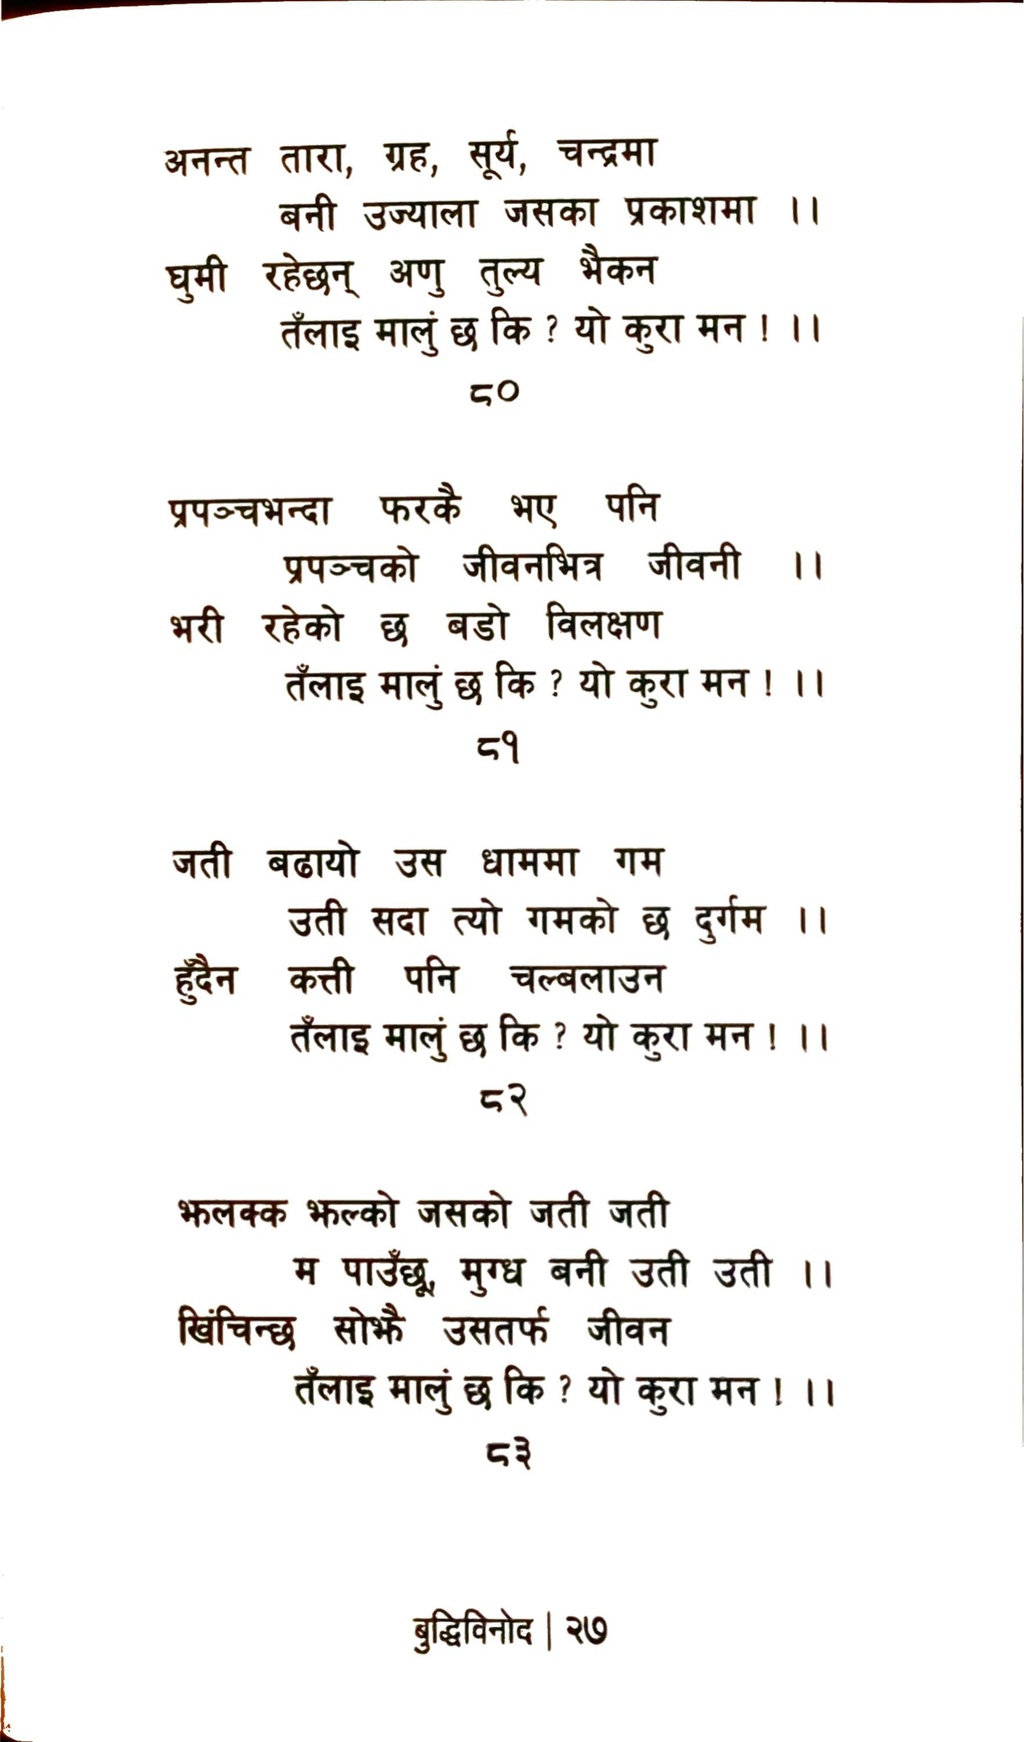 अनन्त तारा, ग्रह, सूर्य, चन्द्रमा
बनी उज्याला जसका प्रकाशमा ।।
घुमी रहेछन् अणु तुल्य भैकन
तँलाइ मालुं छ कि ? यो कुरा मन ! ।।
८०
प्रपञ्चभन्दा फरकै भए पनि
प्रपञ्चको जीवनभित्र जीवनी ।।
भरी रहेको छ बडो विलक्षण
तँलाइ मालुं छ कि ? यो कुरा मन ! ।।
८१
जती बढायो उस धाममा गम
उती सदा त्यो गमको छ दुर्गम ।।
हुँदैन कत्ती पनि चल्बलाउन
तँलाइ मालुं छ कि ? यो कुरा मन ! ।।
८२
झलक्क झल्को जसको जती जती
म पाउँछू, मुग्ध बनी उती उती ।।
खिंचिन्छ सोझै उसतर्फ जीवन
तँलाइ मालुं छ कि ? यो कुरा मन ! ।।
८३
बुद्धिविनोद | २७